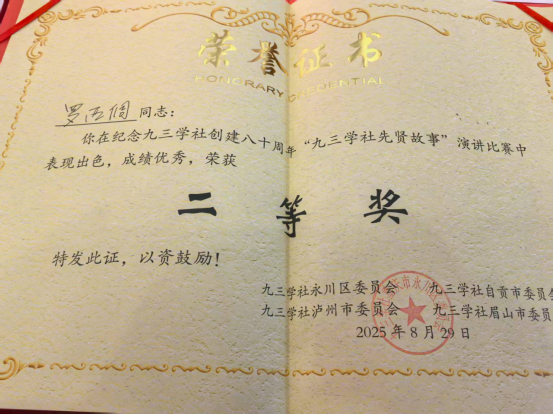 荣誉证书
HONORARY CREDENTIAL
同志：
你在纪念九三学社创建八十周年“九三学社先贤故事”演讲比赛中
表现出色，成绩优秀，荣获
二等奖
特发此证，以资鼓励！
九三学社永川区委员会 九三学社自贡市委员会
九三学社泸州市委员会 九三学社眉山市委员
2025年8月29日